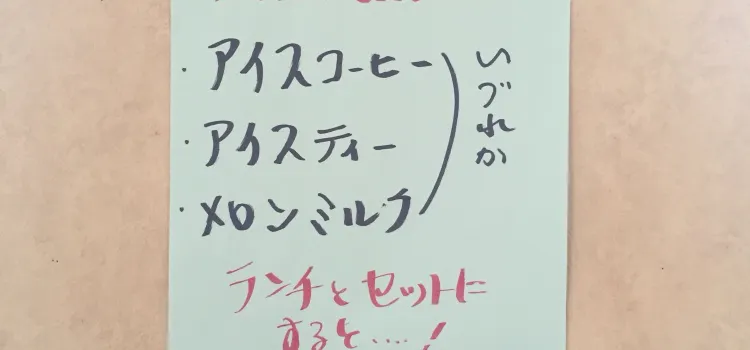 ・アイスコーヒー
・アイスティー
・メロンミルク
いづれか
ランチとセットに
すると....!